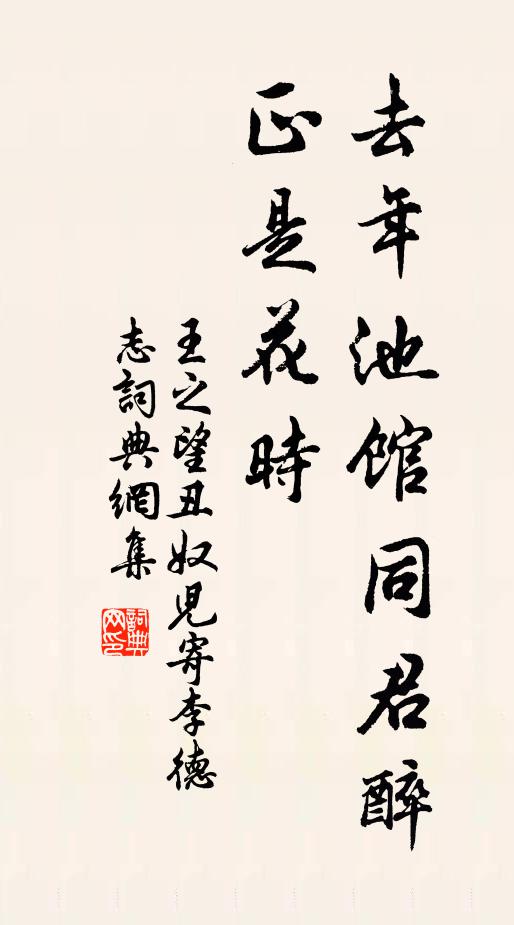 去年池館同君醉
正是花時
王之望丑奴児寄李德
志詞典網集
詞典網印